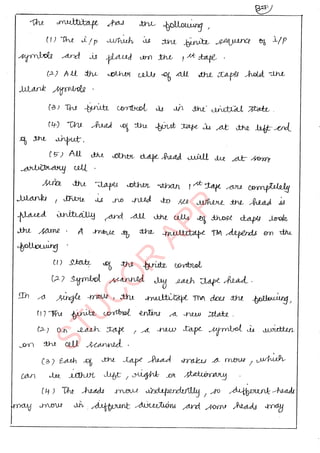 The multitape has the following,
(1) The i/p which is the finite sequence of i/p
symbols and is placed on the 1st tape.
(2) All the other cells of all the tapes hold the
blank symbols.
(3) The finite control is in the initial state.
(4) The head of the first tape is at the left end
of the input.
(5) All the other tape head will be at some
arbitrary cell.
Since the tapes other than 1st tape are completely
blank, there is no need to see where the head is
placed initially and all the cells of those tapes look
the same. A move of the multitape TM depends on the
following
(1) State of the finite control
(2) Symbol scanned by each tape head.
In a single move, the multitape TM does the following,
(1) The finite control enters a new state.
(2) On each tape, a new tape symbol is written
on the cell scanned.
(3) Each of the tape head makes a move, which
can be either left, right or stationary.
(4) The heads move independently, so different heads
may move in different directions and some heads may
STUCOR APP